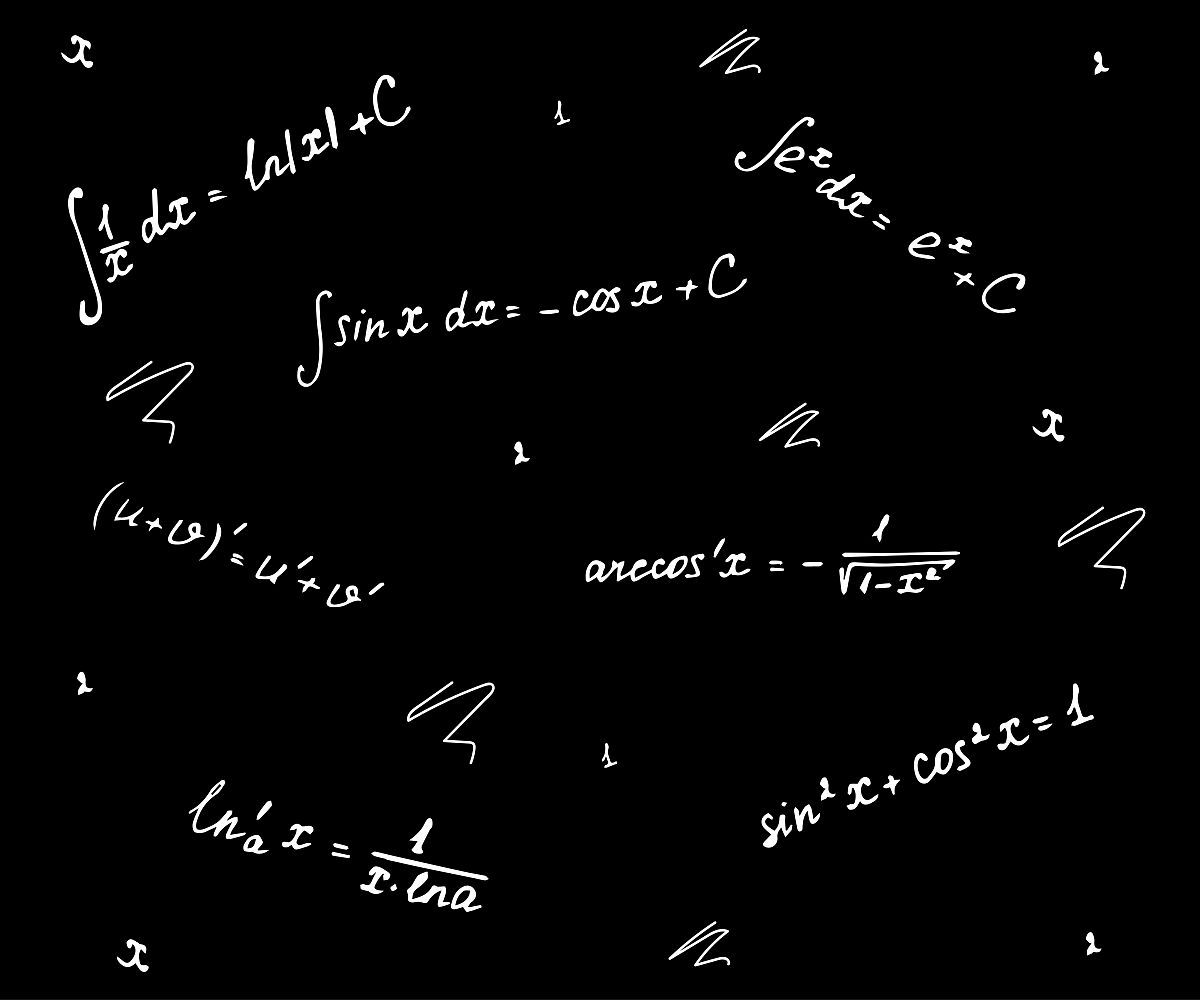 x
2
1
∫ 1/x dx = ln|x| + C
∫ eˣ dx = eˣ + C
∫ sin x dx = - cos x + C
x
2
(u+v)' = u' + v'
arccos'x = - 1/√(1-x²)
2
1
sin²x + cos²x = 1
ln'ₐ x = 1/(x·ln a)
x
2